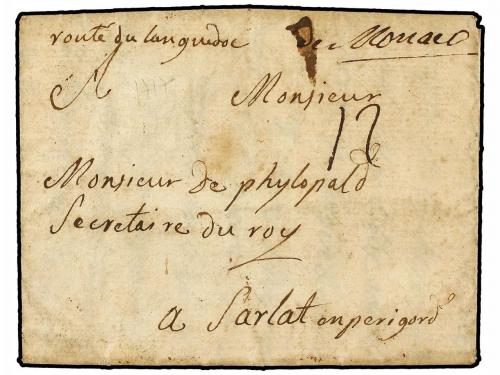 route du languedoc de Monaco
A Monsieur
1717
12
Monsieur de phylopald
Secretaire du roy
a Sarlat en perigord